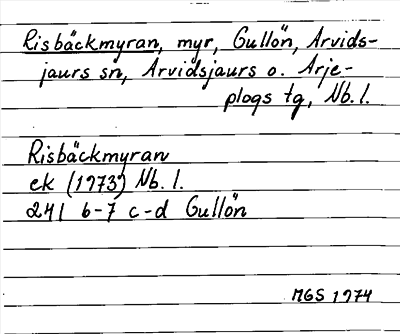 Risbäckmyran, myr, Gullön, Arvids-
jaurs sn, Arvidsjaurs o. Arje-
plogs tg, Nb. l.
Risbäckmyran
ek (1973) Nb. l.
241 6-7 c-d Gullön
MGS 1974